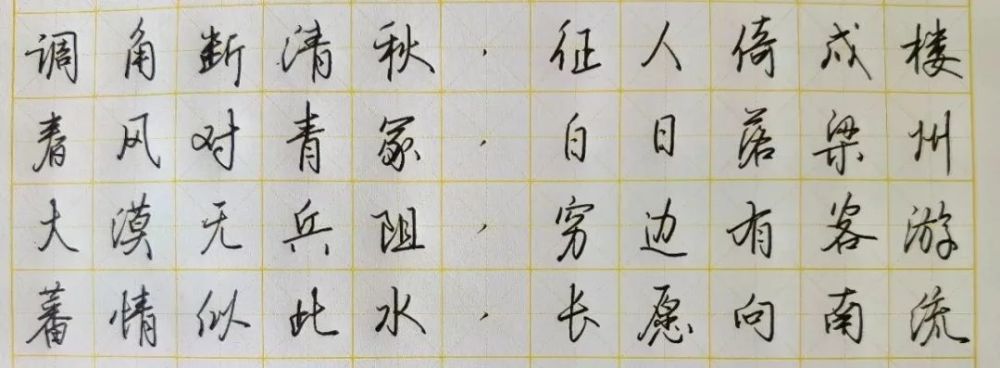 调角断清秋，征人倚戍楼
春风对青冢，白日落梁州
大漠无兵阻，穷边有客游
蕃情似此水，长愿向南流